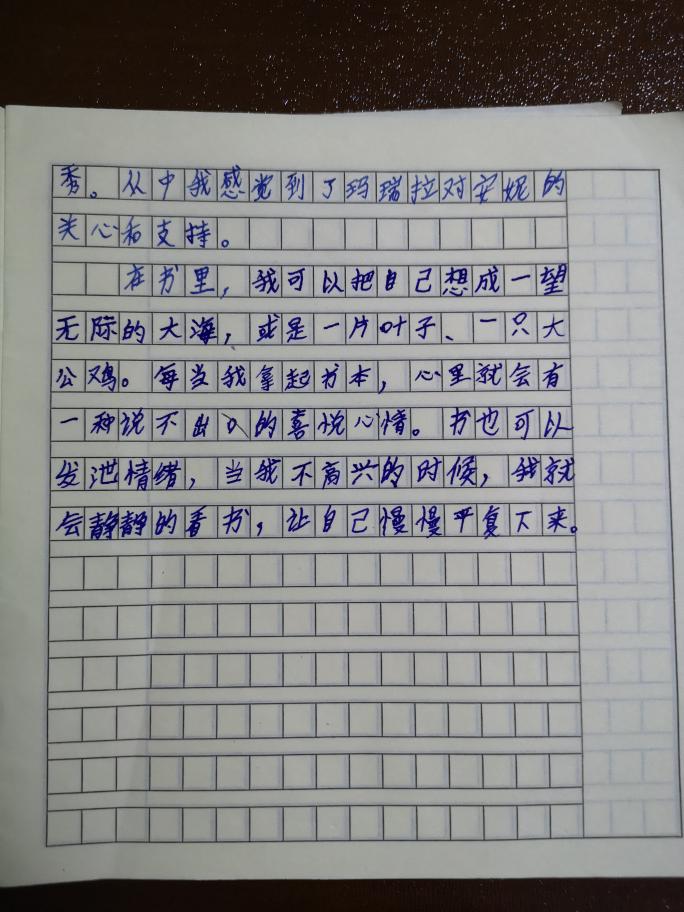 秀。从中我感觉到了玛瑞拉对安妮的
关心和支持。
在书里，我可以把自己想成一望
无际的大海，或是一片叶子、一只大
公鸡。每当我拿起书本，心里就会有
一种说不出口的喜悦心情。书也可以
发泄情绪，当我不高兴的时候，我就
会静静的看书，让自己慢慢平复下来。